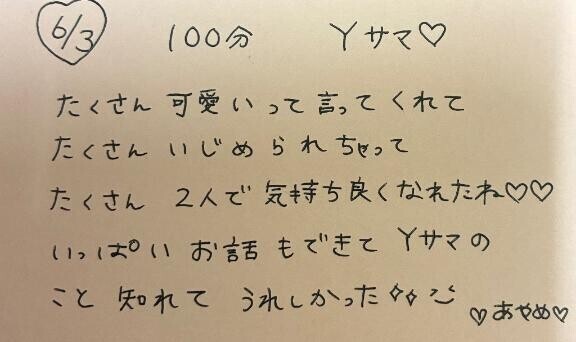 6/3 100分 Yサマ♡
たくさん 可愛いって言ってくれて
たくさん いじめられちゃって
たくさん 2人で気持ち良くなれたね♡♡
いっぱい お話もできて Yサマの
こと 知れて うれしかった✧✧ ツ
♡あやめ♡